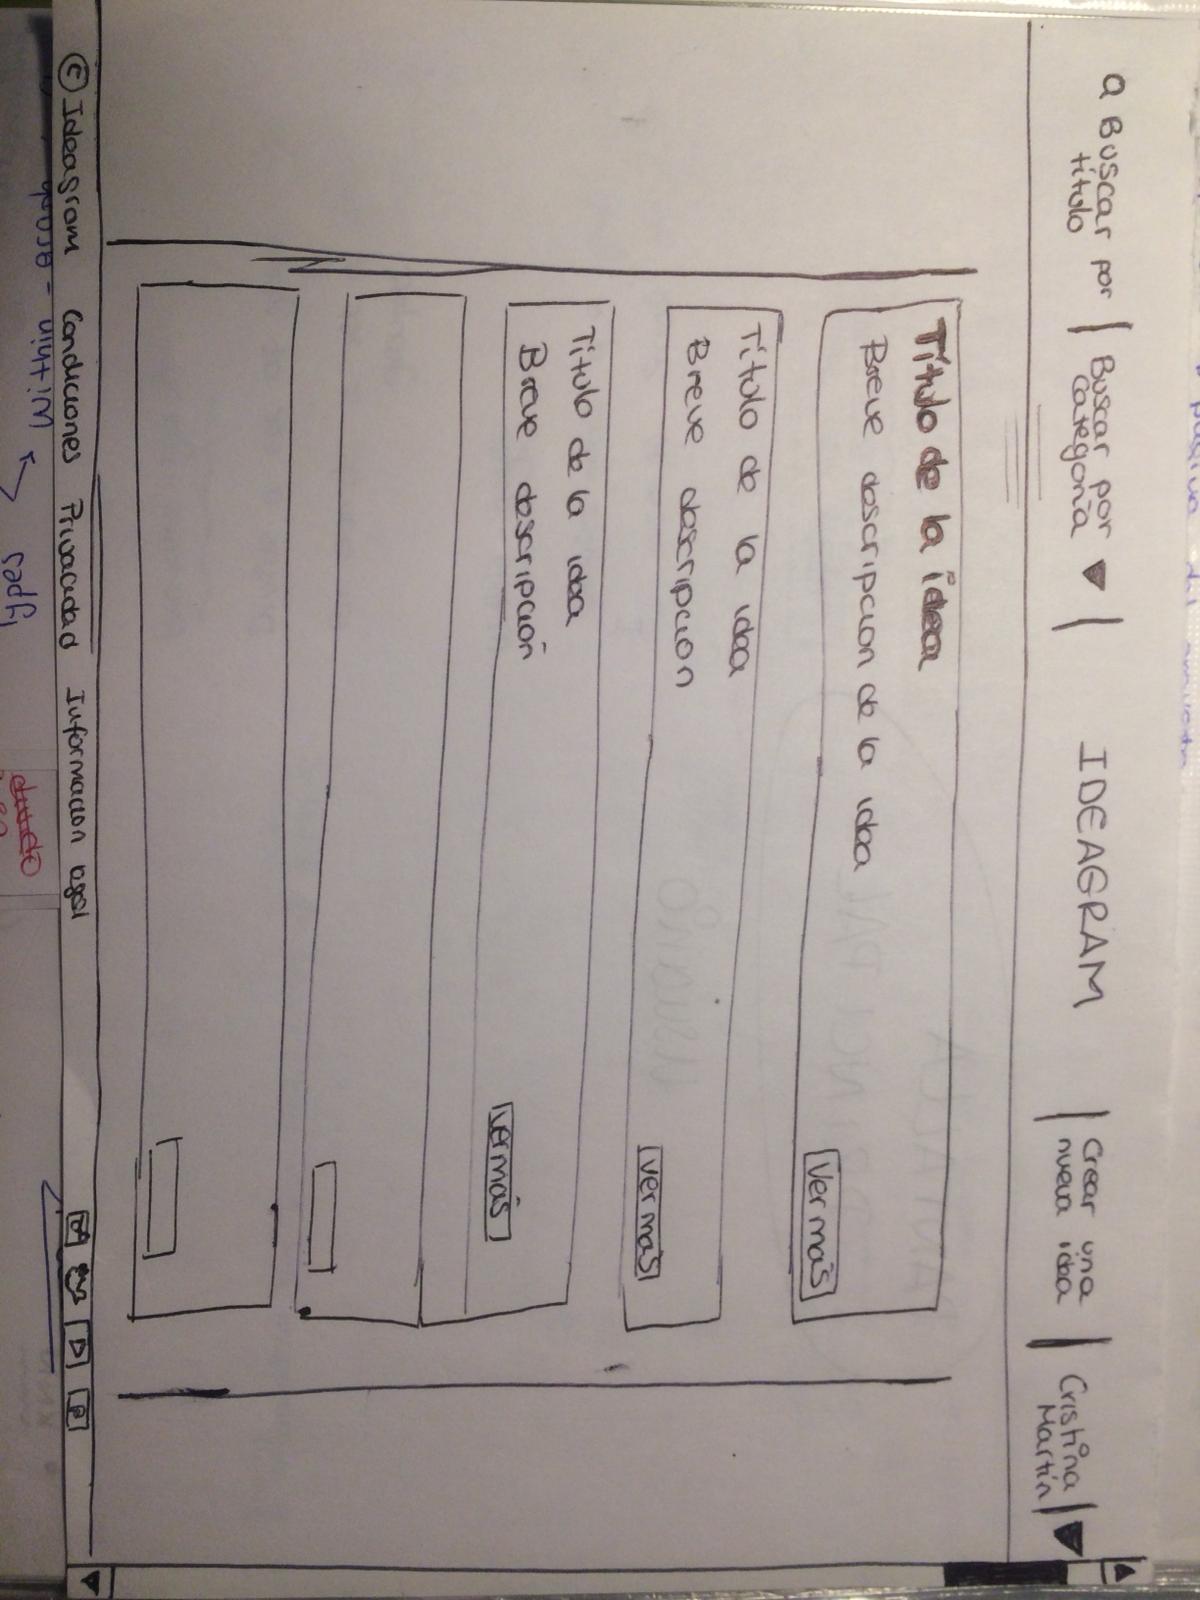 Buscar por
título
Buscar por
categoria
IDEAGRAM
Crear una
nueva idea
Cristina
Martín
Título de la idea
Breve descripcion de la idea
Ver más
Título de la idea
Breve descripcion
ver más
Título de la idea
Breve descripción
ver más
© Ideagram Condiciones Privacidad Informacion
Within
ypes
PANTALLA
PRINCIPAL
USUARIO